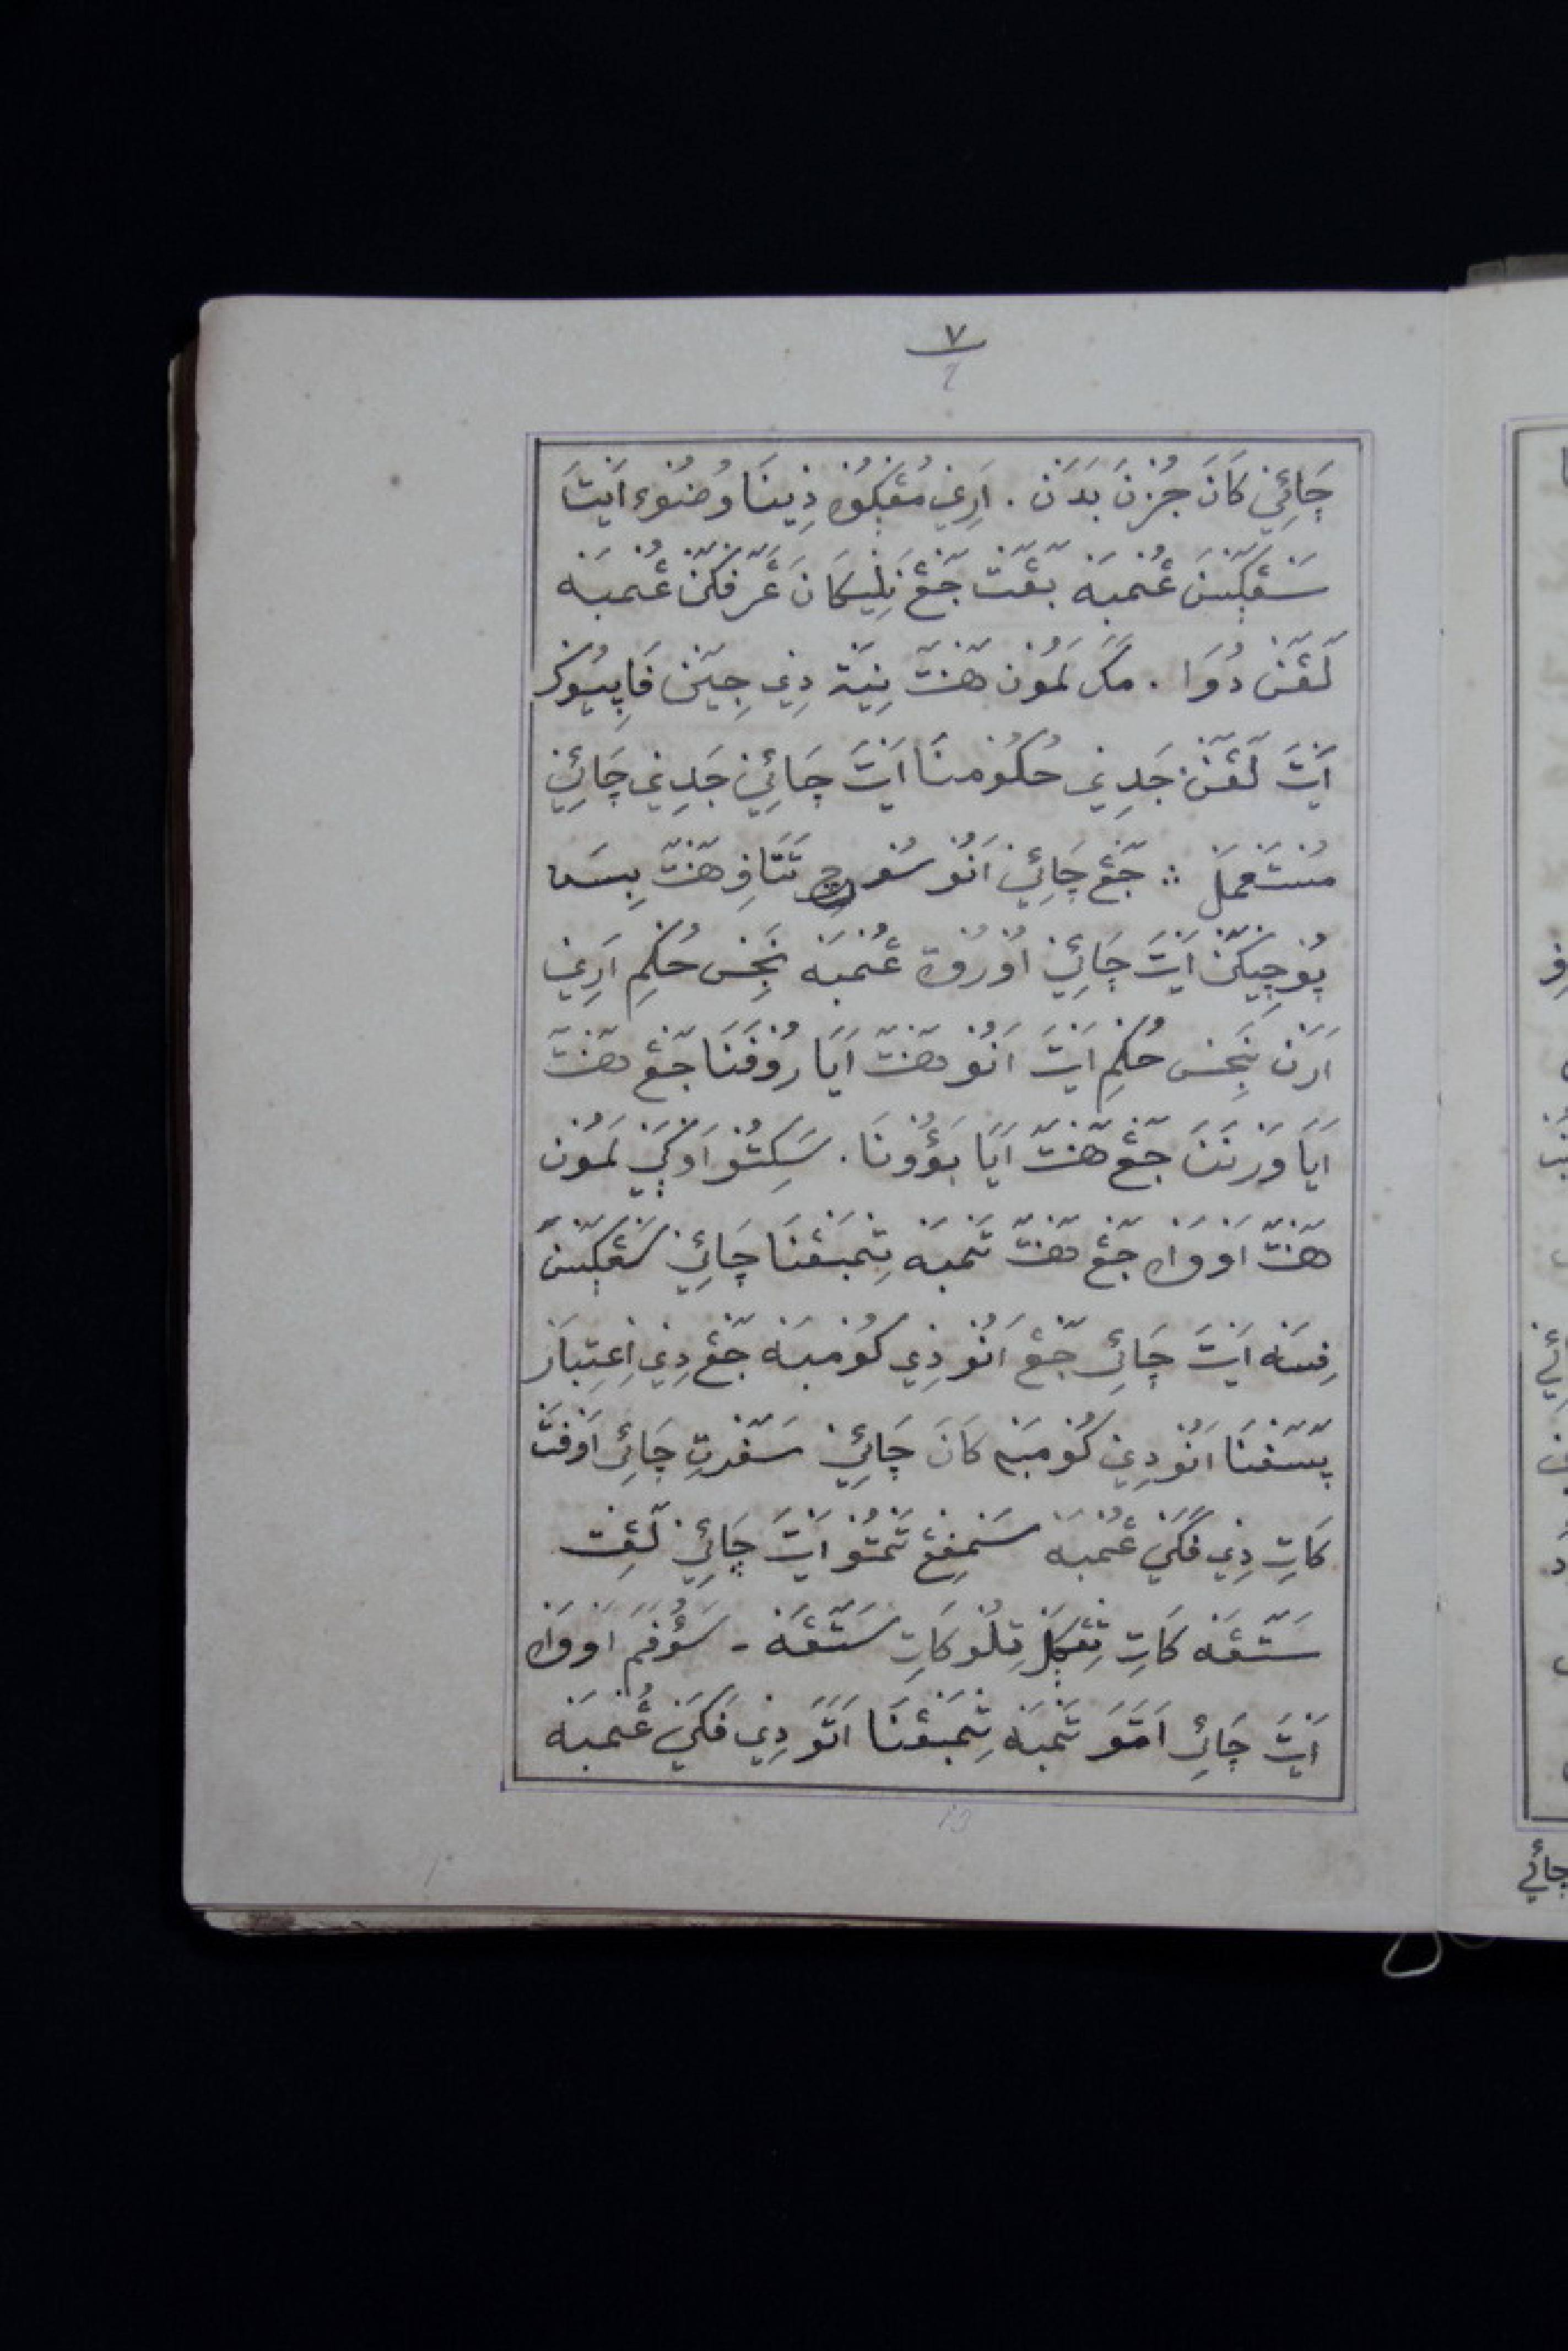 ٧
چَائِي كَانَ جُزنَ بَدَن . اَرِيْ مُڠْكُوْهْ دِينَا وُضُوْء اَيْتَ
سَڠْكَنَ عُمبَهْ بَڠْتْ جَڠْ نَلِيكَانَ عَرْفَكَنْ عُمبَهْ
لَڠَنْ دُوَا . مَڬَ لَمُوْن هَنْتْ نِيَةْ دِيْ جِيَنْ فَاپِيُوْكَرْ
اَيْتَ لَڠَنْ جَدِيْ حُكُوْمنَا اَيْتَ چَائِيْ جَدِيْ چَائِيْ
مُسْتَعْمَلْ ∴ جَڠْ چَائِيْ اَنُوْ سُوچِ تَتَافِ هَنْتْ بِسَا
پُوْچِيكَنْ اَيْتَ چَائِيْ اُوْرُوْهْ عُمبَهْ نَجِسْ حُكُمْ اَرِيْ
اَرَنْ نَجِسْ حُكُمْ اَيْتَ اَنُوْ هَنْتْ اَيَا رُوْفَنَا جَڠْ هَنْتْ
اَيَا وَرْنَنَ جَڠْ هَنْتْ اَيَا بَوْءُوْنَا . سَكِتُوْ اَوْكَيْ لَمُوْن
هَنْتْ اَوْوَاهْ جَڠْ هَنْتْ تَمبَهْ تِمبَڠْنَا چَائِيْ سَڠْكَنْ
فِسَهْ اَيْتَ چَائِ جَڠْ اَنُوْ دِيْ كُوْمبَهْ جَڠْ دِيْ اِعْتِبَارْ
پَسَفْنَا اَنُوْ دِيْ كُوْمبَهْ كَانَ چَائِيْ سَفَرْتِ چَائِ اَوْفَتْ
كَاتِ دِيْ فَكَيْ عُمبَهْ سَمفِڠْ تَمتُوْ اَيْتَ چَائِيْ لَڠِتْ
سَتَّڠَهْ كَاتِ تِڠْكَلْ تِلُوْ كَاتِ سَتَّڠَهْ - سَوُفَمَ اَوْوَاهْ
اَيْتَ چَائِ اَتَوَ تَمبَهْ تِمبَڠْنَا اَتَوَ دِيْ فَكَيْ عُمبَهْ